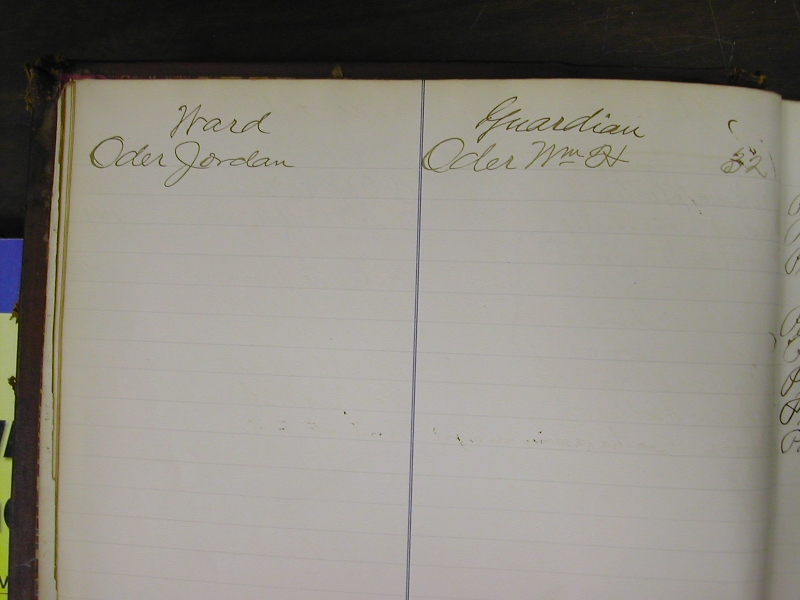 Ward Guardian
Oder Jordan Oder Wm H 32